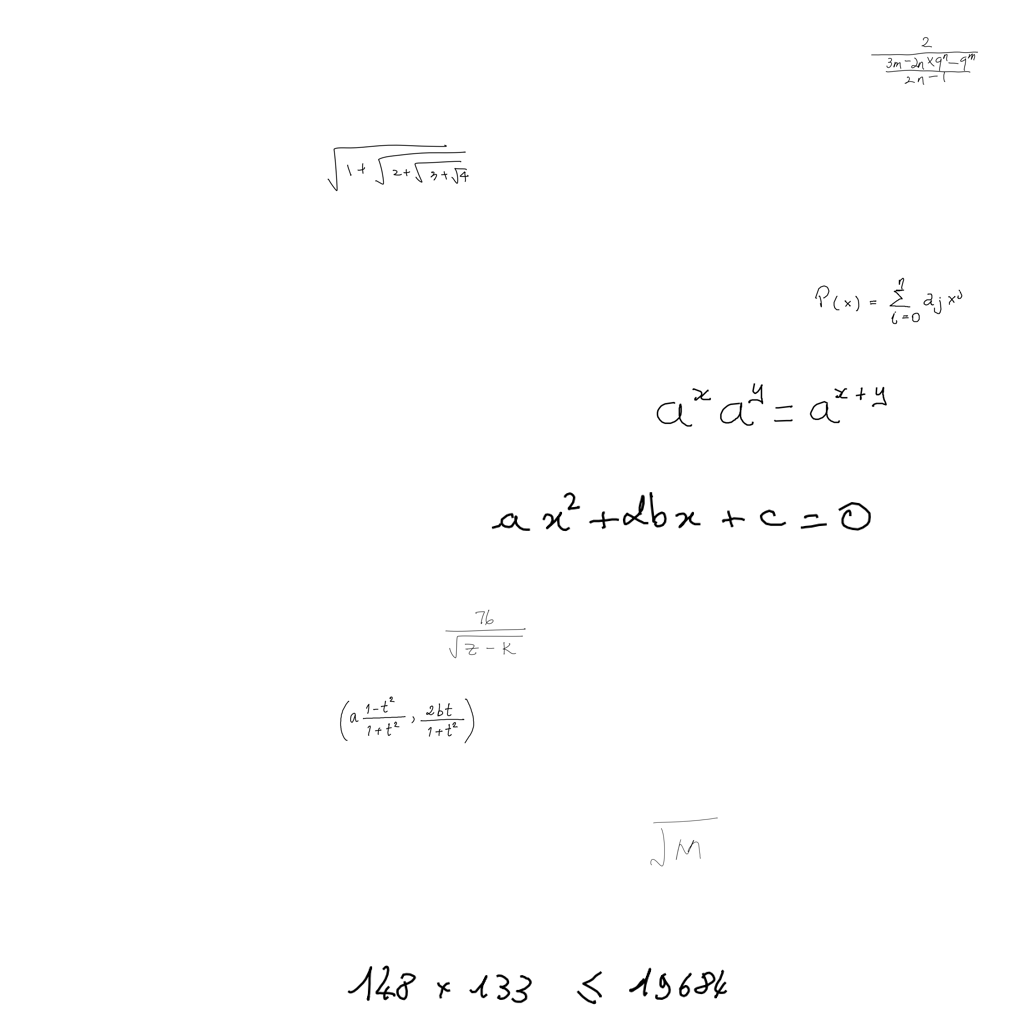 \frac{2}{\frac{3m-2n \times 9^n - 9^m}{2n-1}}
\sqrt{1+\sqrt{2+\sqrt{3+\sqrt{4}}}}
P(x) = \sum_{i=0}^{n} a_j x^j
a^x a^y = a^{x+y}
ax^2 + 2bx + c = 0
\frac{76}{\sqrt{z-k}}
\left(a\frac{1-t^2}{1+t^2}, \frac{2bt}{1+t^2}\right)
\sqrt{M}
148 \times 133 \leq 19684